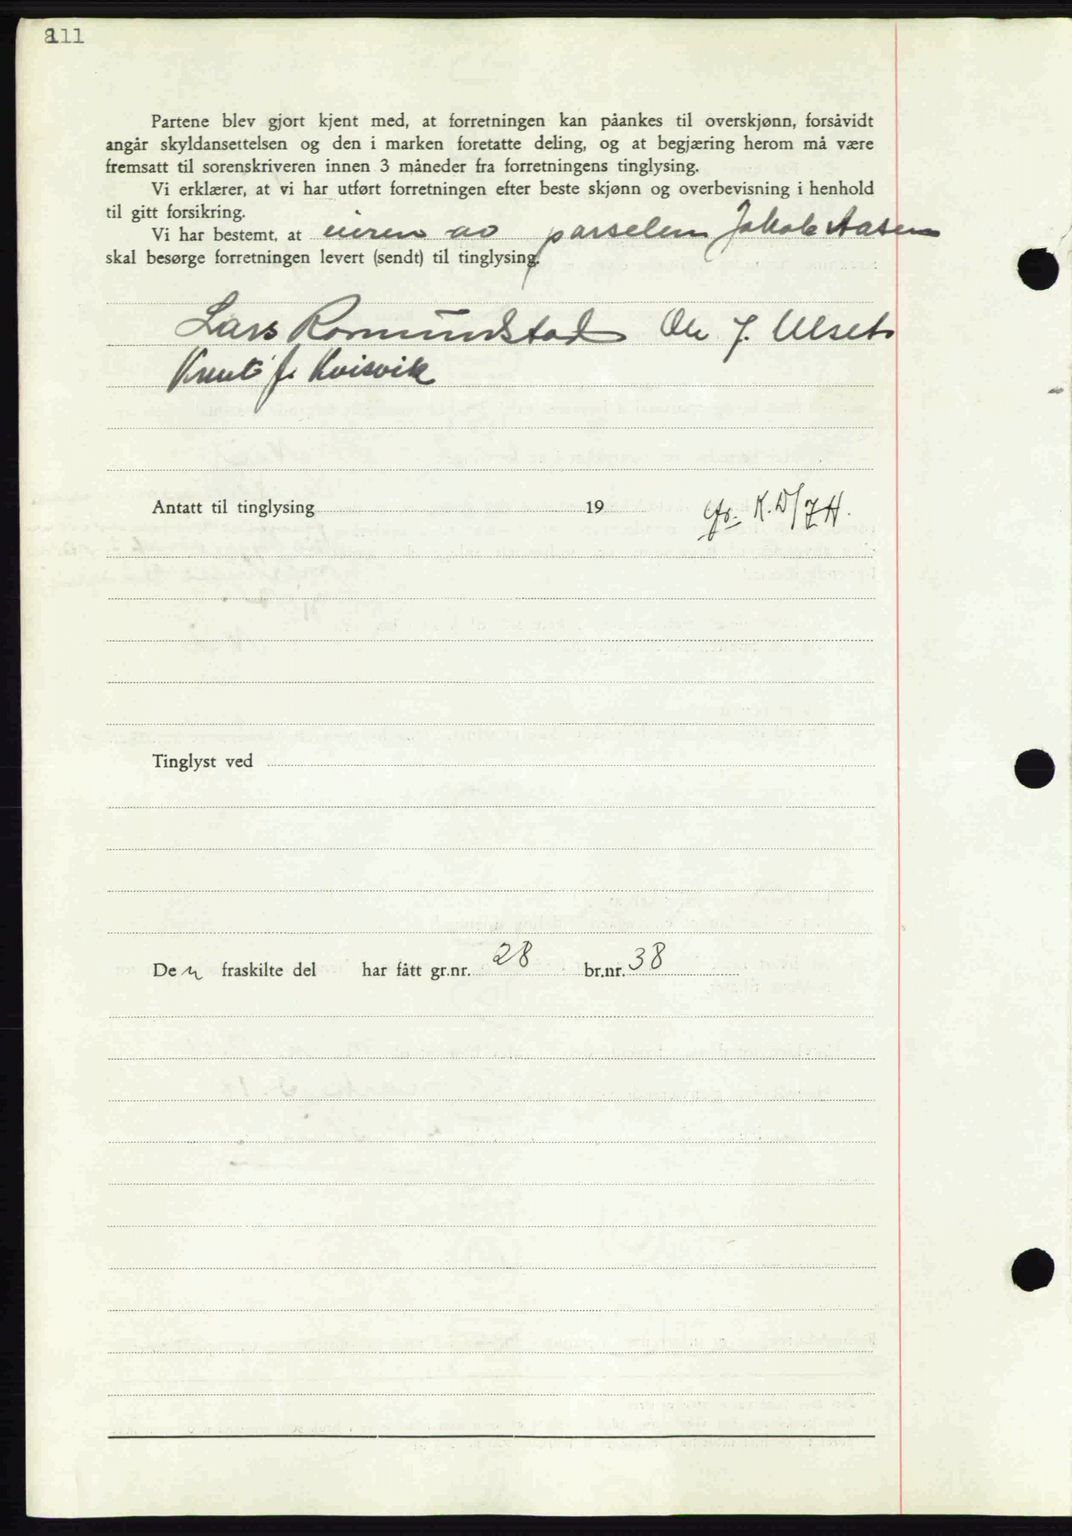 211
Partene blev gjort kjent med, at forretningen kan påankes til overskjønn, forsåvidt
angår skyldansettelsen og den i marken foretatte deling, og at begjæring herom må være
fremsatt til sorenskriveren innen 3 måneder fra forretningens tinglysing.
Vi erklærer, at vi har utført forretningen efter beste skjønn og overbevisning i henhold
til gitt forsikring.
Vi har bestemt, at eieren av parselen Jakob Aasen
skal besørge forretningen levert (sendt) til tinglysing.
Lars Romundstad Ole J. Ulset
Knut J. Kvisvik
Antatt til tinglysing 19
Tinglyst ved
De n fraskilte del har fått gr.nr. 28 br.nr. 38